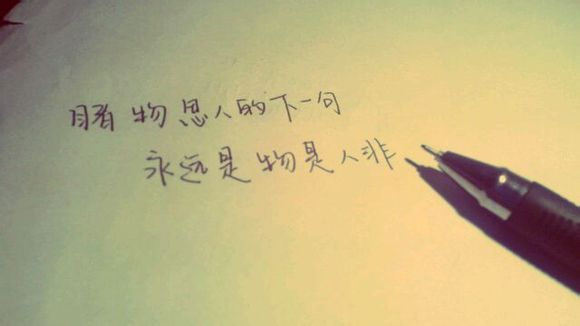 睹物思人的下一句
永远是物是人非